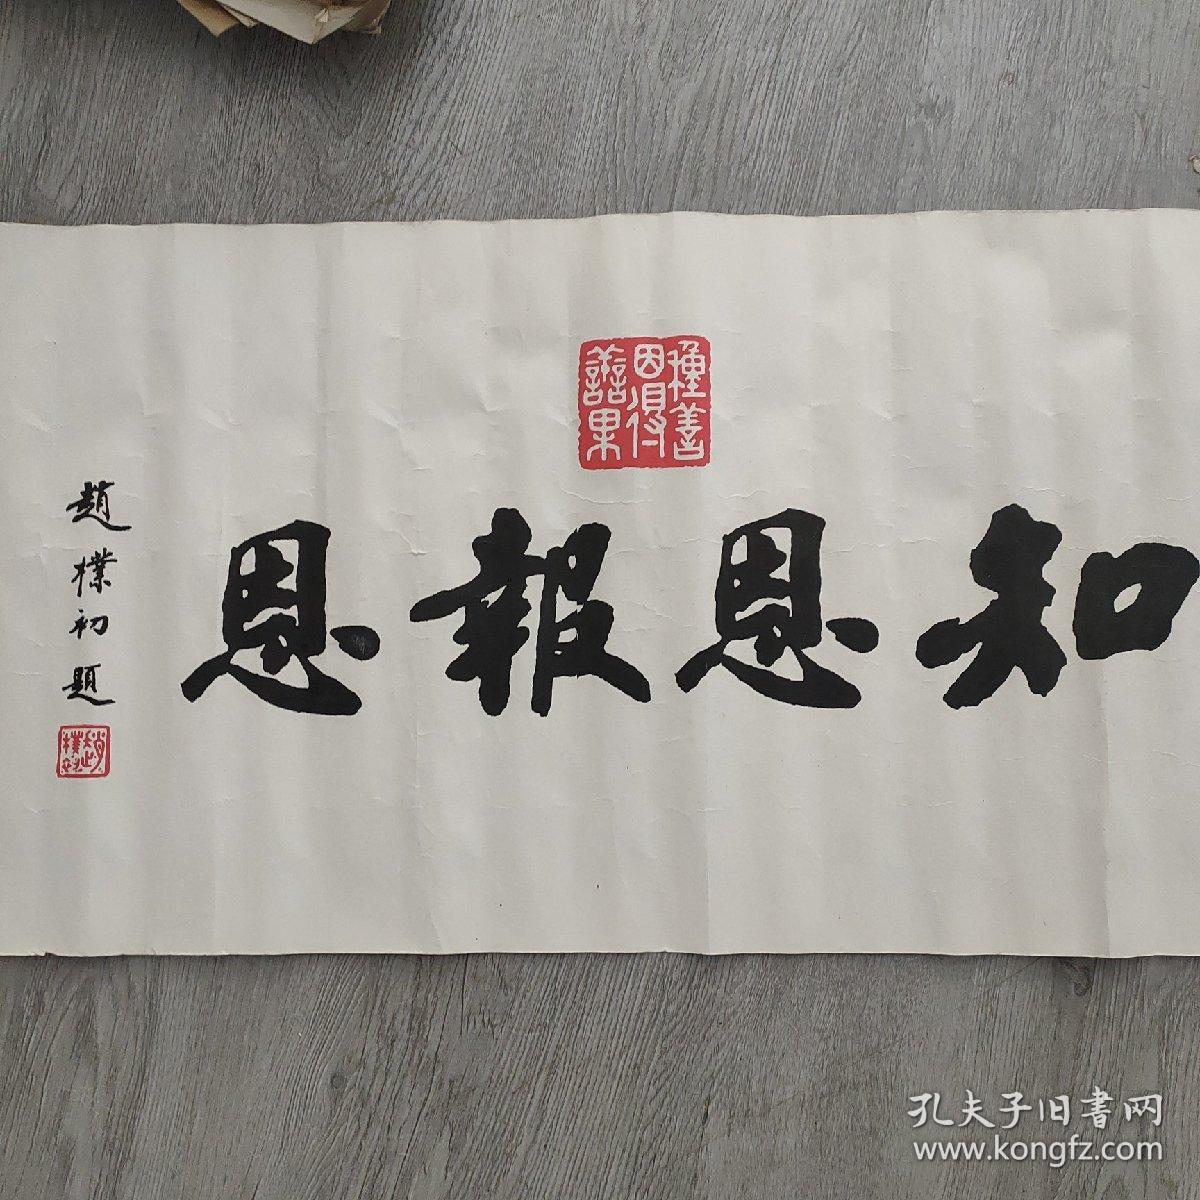 種善因得善果
知恩報恩
趙樸初題
趙樸初
孔夫子旧書网
www.kongfz.com